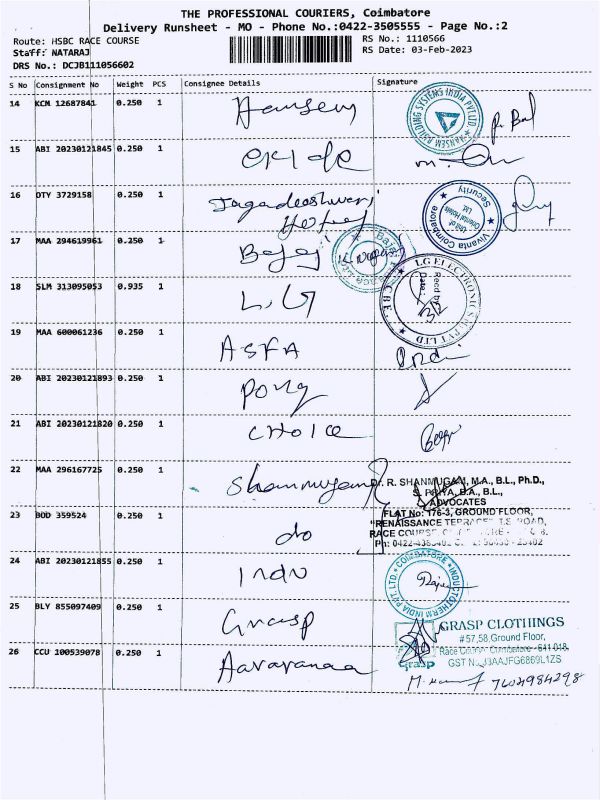 THE PROFESSIONAL COURIERS, Coimbatore
Delivery Runsheet - MO - Phone No.:0422-3505555 - Page No.:2
Route: HSBC RACE COURSE
RS No.: 1110566
Staff: NATARAJ
RS Date: 03-Feb-2023
DRS No.: DCJB111056602
S No Consignment No Weight PCS Consignee Details Signature
14 KCM 12687841 0.250 1 Hansem
15 ABI 20230121845 0.250 1 exide
16 OTY 3729158 0.250 1 Jagadeeshwari
17 MAA 294619961 0.250 1 Bajaj
18 SLM 313095053 0.935 1 L.G
19 MAA 600061236 0.250 1 ASFA
20 ABI 20230121893 0.250 1 Pony
21 ABI 20230121820 0.250 1 CHOICE
22 MAA 296167725 0.250 1 Shanmugam
23 BOD 359524 0.250 1 do
24 ABI 20230121855 0.250 1 Indu
25 BLY 855097409 0.250 1 Grasp
26 CCU 100539078 0.250 1 Aaravanaa
HANSEM BUILDING SYSTEMS INDIA PVT LTD
Security
Unit of
Oriental Hotels
Ltd.
Vivanta Coimbatore
LG ELECTRONICS
PVT LTD
C.B.E.
Recd by
Date:
3/2
R. SHANMUGAM, M.A., B.L., Ph.D.,
S. PRIYA, B.A., B.L.,
ADVOCATES
FLAT No: 176-3, GROUND FLOOR,
"RENAISSANCE TERRACE" T.S. ROAD,
RACE COURSE
INDUCTOTHERM INDIA PVT. LTD.
COIMBATORE
GRASP CLOTHINGS
#57,58,Ground Floor,
Race Course Coimbatore - 641 018.
Grasp
7604984298